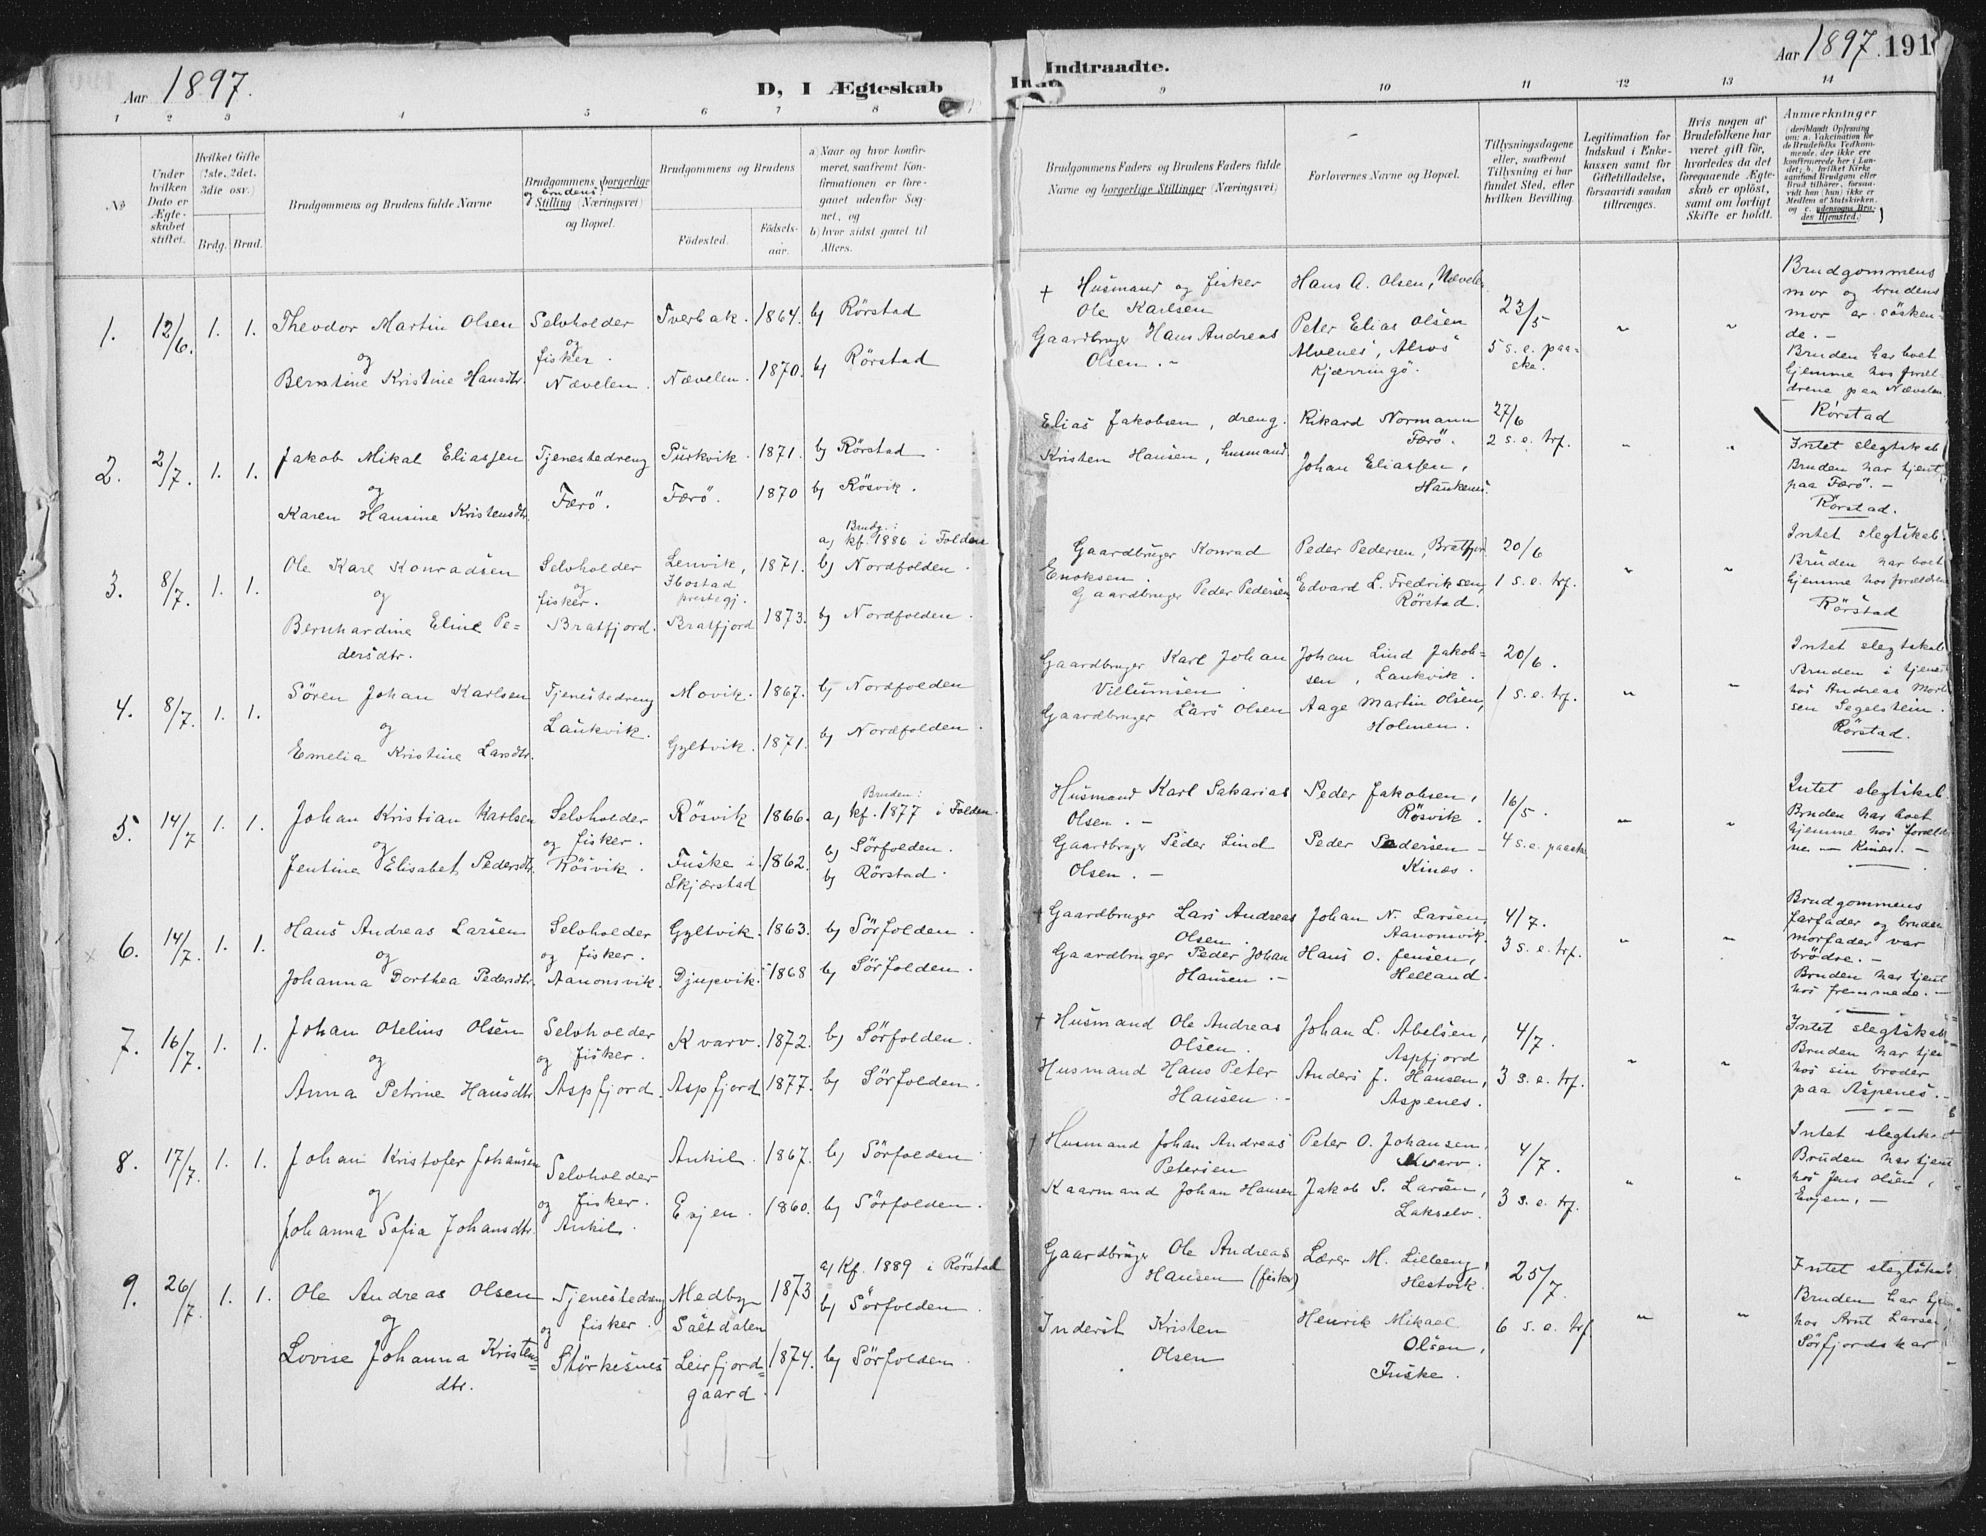 Aar 1897.
D, I Ægteskab
Indtraadte.
Aar 1897. 191
1 2 3 4 5 6 7 8
9 10 11 12 13 14
No
Under hvilken Dato er Ægteskabet stiftet.
Hvilket Gifte (1ste, 2det, 3die osv.)
Brdg. Brud.
Brudgommens og Brudens fulde Navne
Brudgommens borgerlige og brudens Stilling (Næringsvei) og Bopæl.
Brudgommens og Brudens
Fødested.
Fødselsaar.
a) Naar og hvor konfirmeret, saafremt Konfirmationen er foregaaet udenfor Sognet, og
b) hvor sidst gaaet til Alters.
Brudgommens Faders og Brudens Faders fulde Navne og borgerlige Stillinger (Næringsvei)
Forlovernes Navne og Bopæl.
Tillysningsdagene eller, saafremt Tillysning ei har fundet Sted, efter hvilken Bevilling.
Legitimation for Indskud i Enkekassen samt for Giftetilladelse, forsaavidt saadan tiltrænges.
Hvis nogen af Brudefolkene har været gift før, hvorledes da det foregaaende Ægteskab er opløst, samt om lovligt Skifte er holdt.
Anmærkninger
(deriblandt Oplysning om: a. Vakcination for de Brudefolks Vedkommende, der ikke ere konfirmerede her i Landet; b. hvilket Kirkesamfund Brudgom eller Brud tilhører, forsaavidt han (hun) ikke er Medlem af Statskirken, og c. udensogns Brudes Hjemsted.)
1. 12/6. 1. 1. Theodor Martin Olsen
og
Berntine Kristine Hansdtr.
Selvholder
og
fisker.
Nævelen.
Tverbak. 1864. b) Rörstad
Nævelen. 1870. b) Rörstad
+ Husmand og fisker
Ole Karlsen
Gaardbruger Hans Andreas
Olsen. -
Hans A. Olsen, Nævelen
Peter Elias Olsen
Alvenes,
Kjærringö.
23/5
5 s. e. paaske.
" "
Brudgommens
mor og brudens
mor er sösken-
de. -
Bruden har boet
hjemme hos foræl-
drene paa Nævelen
Rörstad
2. 2/7. 1. 1. Jakob Mikal Eliassen
og
Karen Hansine Kristensdtr.
Tjenestedreng
Færö.
Purkvik. 1871. b) Rörstad.
Færö. 1870 b) Rösvik.
Elias Jakobsen, dreng.
Kristen Hansen, husmand
Rikard Normann
Færö.
Johan Eliassen,
27/6
2 s. e. trf.
" "
Intet slegtskab
Bruden har tjent
paa Færö. -
Rörstad.
3. 8/7. 1. 1. Ole Karl Konradsen
og
Bernhardine Eline Pe-
dersdtr.
Selvholder
og
fisker.
Bratfjord.
Lenvik,
Ibostad
prestegj.
Bratfjord
1871.
1873.
Brudg.:
a) kf. 1886 i Folden
b) Nordfolden.
b) Nordfolden.
Gaardbruger Konrad
Enoksen.
Gaardbruger Peder Pedersen
Peder Pedersen, Bratfjord
Edvard L. Fredriksen,
Rörstad.
20/6
1 s. e. trf.
" "
Intet slegtskab.
Bruden har boet
hjemme hos forældrene
Rörstad
4. 8/7. 1. 1. Sören Johan Karlsen
og
Emelia Kristine Larsdtr.
Tjenestedreng
Laukvik.
Movik. 1867. b) Nordfolden
Gyltvik. 1871. b) Nordfolden.
Gaardbruger Karl Johan
Villumsen.
Gaardbruger Lars Olsen
Johan Lind Jakob-
sen, Laukvik.
Aage Martin Olsen,
Holmen.
20/6.
1 s. e. trf.
" "
Intet slegtskab
Bruden i tjeneste
hos Andreas Mort
sen Segelstein.
Rörstad.
5. 14/7 1. 1. Johan Kristian Karlsen
og
Jentine Elisabet Pedersdtr.
Selvholder
og fisker.
Rösvik.
Rösvik 1866.
Fuske i
Skjærstad
1862.
Bruden:
a) kf. 1877 i Folden.
b) Sörfolden.
b) Rörstad.
Husmand Karl Sakarias
Olsen. -
Gaardbruger Peder Lind
Olsen. -
Peder Jakobsen,
Rösvik.
Peder Pedersen -
Kines.
16/5.
4 s. e. paaske
" "
Intet slegtskab.
Bruden har boet
hjemme hos foreldre
ne - Kines. -
6. 14/7. 1. 1. Hans Andreas Larsen
og
Johanna Dorthea Pedersdtr.
Selvholder
og fisker.
Aanonsvik.
Gyltvik. 1863. b) Sörfolden.
Djupvik. 1868 b) Sörfolden.
+ Gaardbruger Lars Andreas
Olsen.
Gaardbruger Peder Johan
Hansen. -
Johan N. Larsen,
Aanonsvik.
Hans O. Jensen,
Helland.
4/7.
3 s. e. trf.
" "
Brudgommens
farfader og bruden
morfader var
brödre. -
Bruden har tjent
hos fremmede. -
7. 16/7. 1. 1. Johan Otelius Olsen
og
Anna Petrine Hansdtr.
Selvholder
og fisker.
Aspfjord.
Kvarv. 1872. b) Sörfolden.
Aspfjord 1877. b) Sörfolden.
+ Husmand Ole Andreas
Olsen.
Husmand Hans Peter
Hansen. -
Johan L. Abelsen,
Aspfjord
Anders J. Hansen,
Aspenes.
4/7.
3 s. e. trf.
" "
Intet slegtskab
Bruden har tjen
hos sin broder
paa Aspenes. -
8. 17/7. 1. 1. Johan Kristofer Johansen
og
Johanna Sofia Johansdtr.
Selvholder
og fisker.
Ankil.
Ankil. 1867. b) Sörfolden
Evjen. 1860. b) Sörfolden.
+ Husmand Johan Andreas
Petersen
Kaarmand Johan Hansen
Peter O. Johansen,
Kvarv.
Jakob S. Larsen,
Lakselv.
4/7.
3 s. e. trf.
" "
Intet slegtskab
Bruden har tjent
hos Jens Olsen,
Evjen. -
9. 26/7 1. 1. Ole Andreas Olsen
og
Lovise Johanna Kristens=
dtr.
Tjenestedreng
og fisker.
Störkesnes
Medby
Saltdalen
Leirfjord=
gaard.
1873
1874.
a) Kf. 1889 i Rörstad
b) Sörfolden.
b) Sörfolden.
Gaardbruger Ole Andreas
Hansen (fisker)
Inderst Kristen
Olsen
Lærer M. Lilleeng,
Hestvik.
Henrik Mikael
Olsen,
Fuske.
25/7.
6 s. e. trf
" "
Intet slegtskab
Bruden har tjen
hos Arnt Larsen
Sörfjordskar